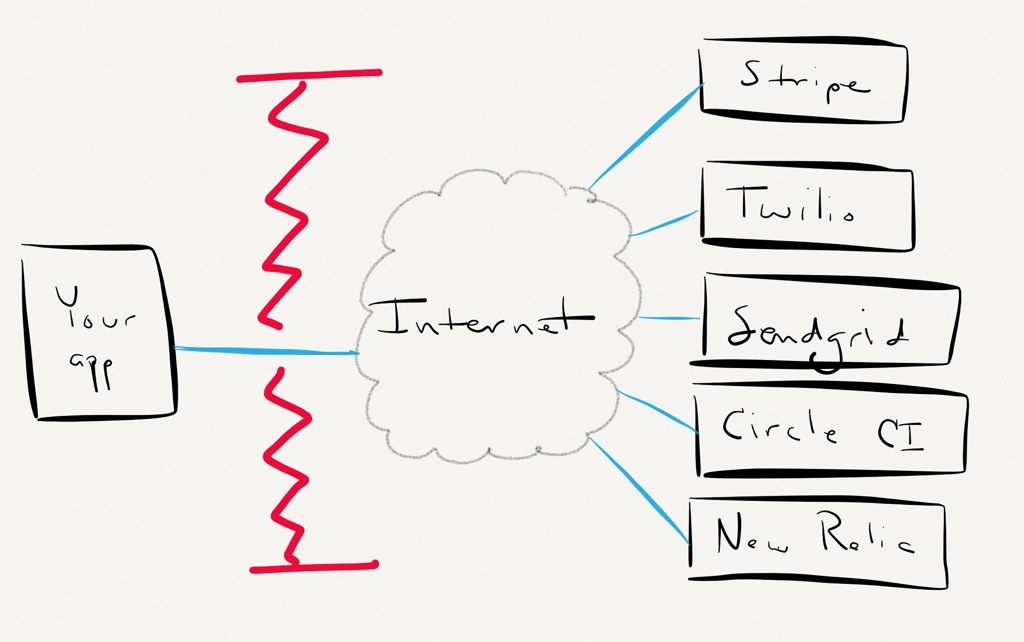 Your
app
Internet
Stripe
Twilio
Sendgrid
Circle CI
New Relic